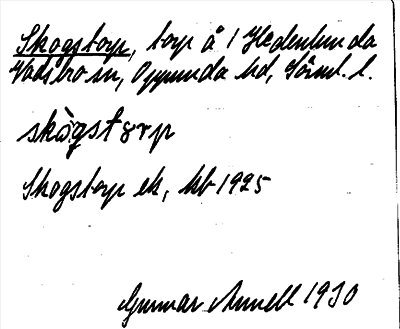 Skogstorp, torp å 1 Hedenlunda
Vadsbro sn, Oppunda hd, Söml. l.
skògstɷrp
Skogstorp ek, kb 1925
Gunnar Annell 1930